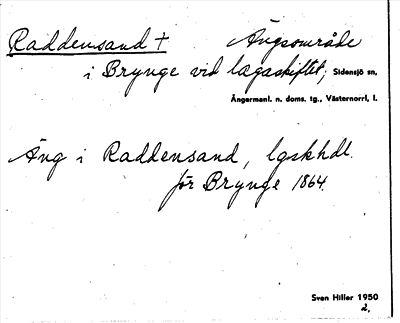 Raddensand † Ängsområde
i Brynge vid lagaskiftet; Sidensjö sn,
Ångermanl. n. doms. tg., Västernorrl, l.
Äng i Raddensand, lgskhdl.
för Brynge 1864.
Sven Hiller 1950
2,